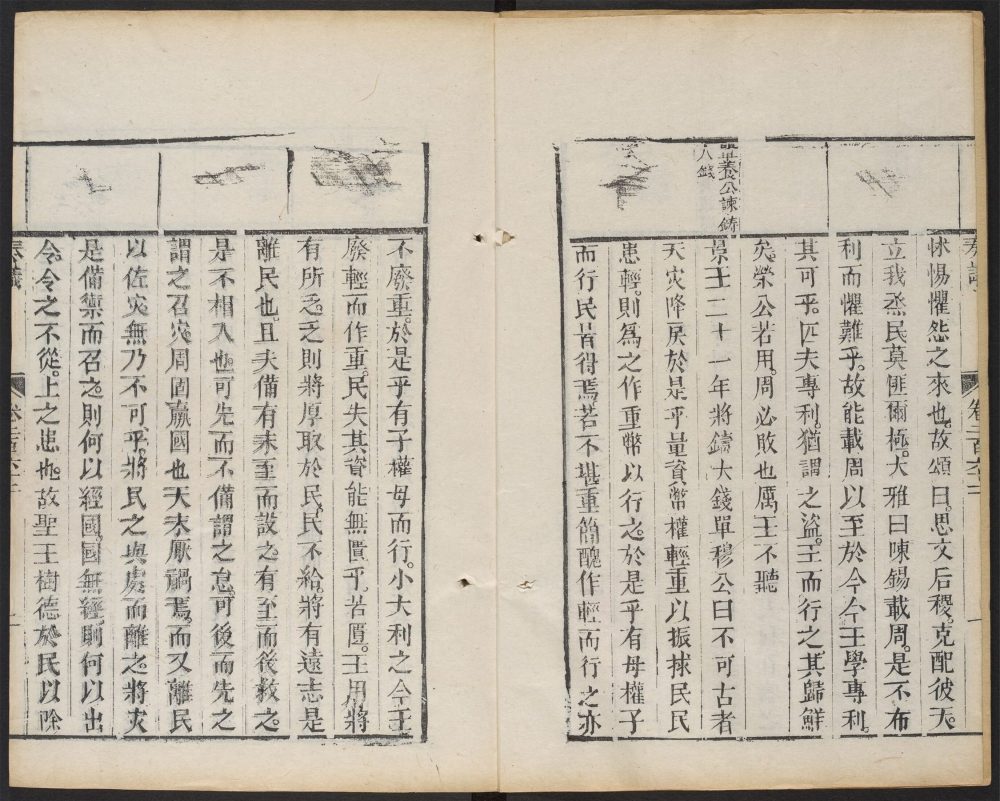 奏議
卷二百六十二
怵惕懼怨之來也。故頌曰。思文后稷。克配彼天。
立我烝民莫匪爾極。大雅曰陳錫載周。是不布
利而懼難乎。故能載周以至於今今王學專利。
其可乎。匹夫專利。猶謂之盜。王而行之其歸鮮
矣。榮公若用。周必敗也厲王不聽
單穆公諫鑄
大錢
景王二十一年將鑄大錢單穆公曰不可古者
天災降戾於是乎量資幣權輕重以振捄民民
患輕。則爲之作重幣以行之。於是乎有母權子
而行民皆得焉。若不堪重簡醜作輕而行之亦
不廢重。於是乎有子權母而行。小大利之今王
廢輕而作重。民失其資能無匱乎。若匱。王用將
有所乏。乏則將厚取於民。民不給。將有遠志是
離民也。且夫備有未至而設之。有至而後救之。
是不相入也。可先而不備謂之怠。可後而先之
謂之召災。周固羸國也天未厭禍焉。而又離民
以佐災無乃不可乎。將民之與處而離之。將災
是備禦而召之。則何以經國。國無經。則何以出
令。令之不從。上之患也。故聖王樹德於民以除
奏議